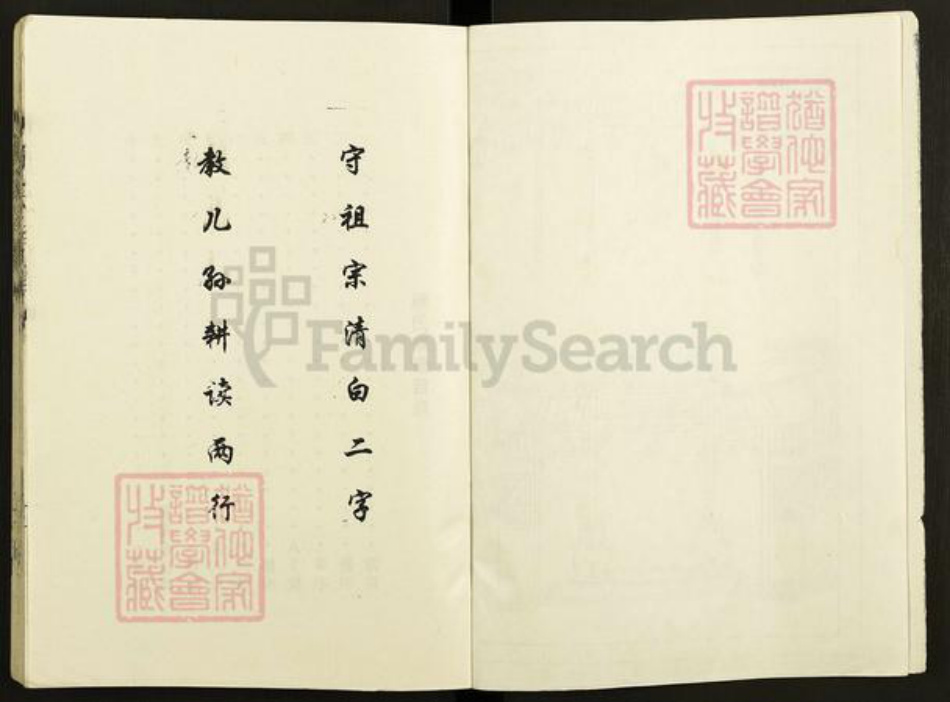 守祖宗清白二字
教儿孙耕读两行
猶他家譜學會收藏
猶他家譜學會收藏
FamilySearch